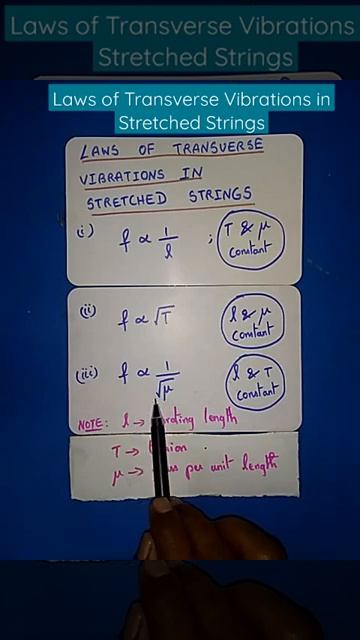 Laws of Transverse Vibrations
Stretched Strings
Laws of Transverse Vibrations in
Stretched Strings
LAWS OF TRANSVERSE
VIBRATIONS IN
STRETCHED STRINGS
(i) f ∝ 1/l ; T & μ constant
(ii) f ∝ √T l & μ constant
(iii) f ∝ 1/√μ l & T constant
NOTE: l → length
T →
μ → per unit length